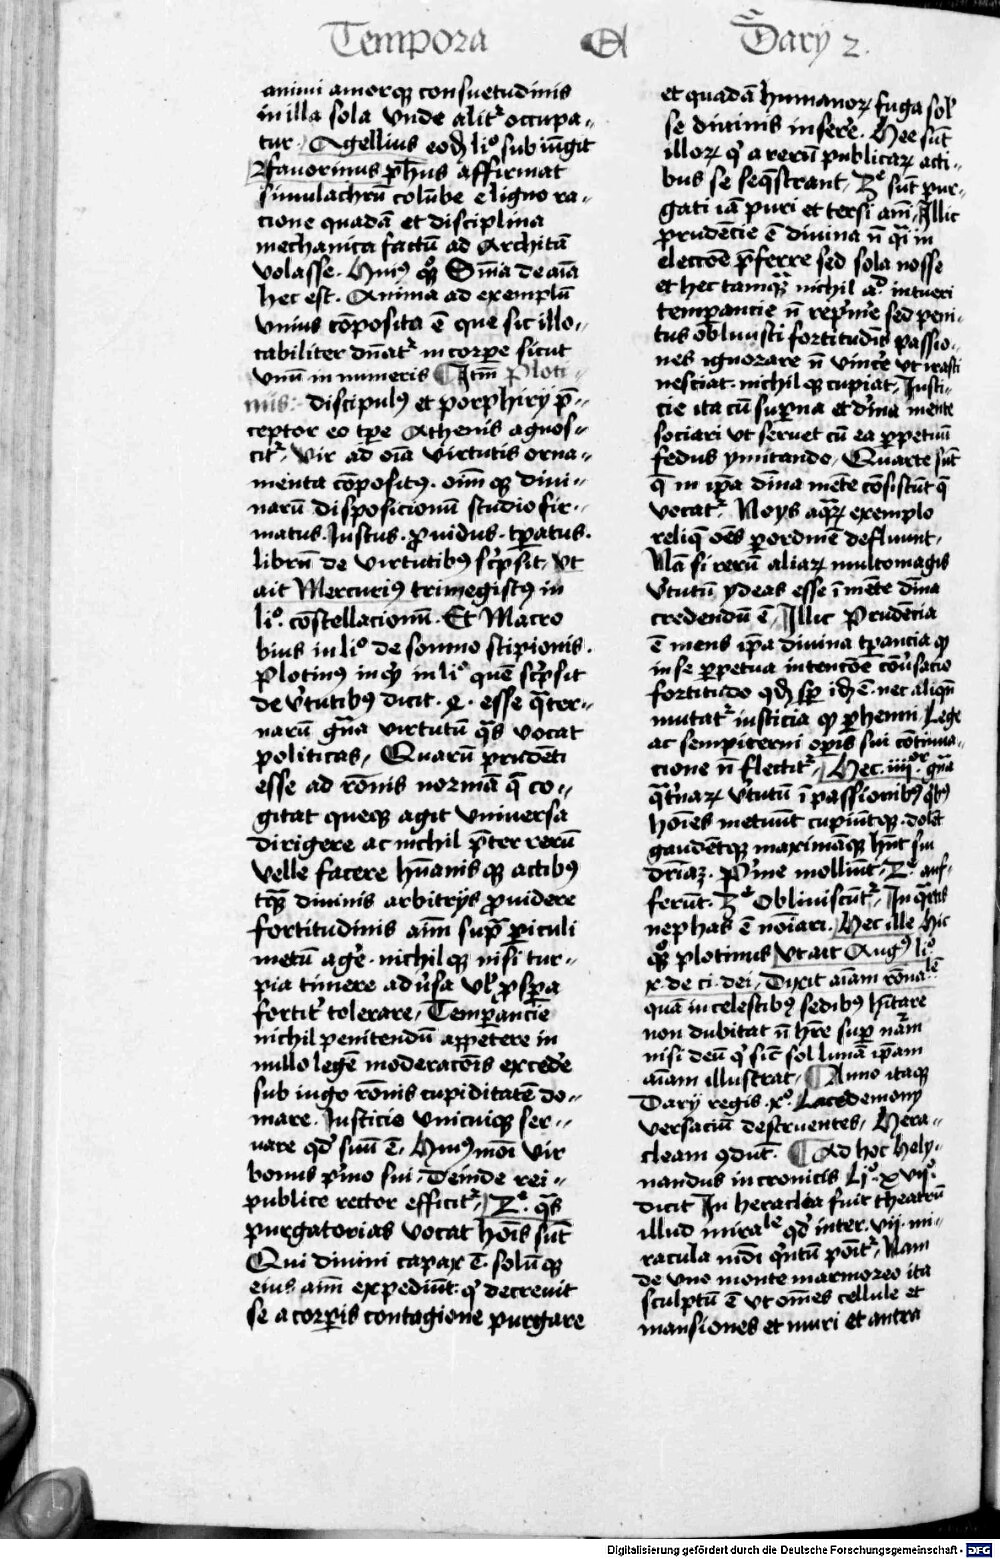 Tempora A Dary 2.
animi amorq̃ consuetudinis
in illa sola vnde alit᷑ occupa-
tur. Agellius eod̃ li° sub iũgit
Ffauorinus ph̃us affirmat
simulachrũ colũbe e ligno ra-
cione quadã et disciplina
mechanica factũ ad Architã
volasse. Huiꝰ q̊ꝫ Sñia de aĩa
hec est. Anima ad exemplũ
vnius cõposita ẽ que sic illo-
cabiliter dñat᷑ in corpe sicut
vnũ in numeris ¶ Itm̃ Ploti-
nus discipulꝰ et porphirij p̃-
ceptor eo tpe Athenis agnos-
cit᷑. Vir ad oĩa virtutis orna-
menta cõpositꝰ. oĩm qꝫ diui-
narũ disposicionũ studio fir-
matus. Justus. ꝓuidus. tp̃atus.
librũ de virtutibꝰ sc̃psit. vt
ait Mercuriꝰ trimegistꝰ in
li°. cõstellacionũ. Et Macro
bius in li° de somno scipionis.
Plotinꝰ inq̃ in li° quẽ sc̃psit
de v̓tutibꝰ dicit. ꝙ. esse q̃ter-
narũ gña virtutũ q̃s vocat
politicas, Quarũ prudẽti
esse ad rõnis normã q̃ co-
gitat queqꝫ agit vniuersa
dirigere ac nichil p̃ter rerũ
velle facere hũanis qꝫ actibꝰ
tq̃ȝ diuinis arbitrijs ꝓuidere
fortitudinis aĩm sup̃ ꝑiculi
metũ ag̓e. nichil qꝫ nisi tur-
pia timere adu̓sa vl̓ ꝓsp̃a
fortit᷑ tolerare, Temperancie
nichil penitendũ appetere in
nullo legẽ moderacõis excede̓
sub iugo rõnis cupiditatẽ do-
mare. Justicie vnicuiqꝫ ser-
uare qd̓ suũ ẽ. Huiꝰ moĩ vir
bonus p̓mo sui. deinde rei-
publice rector efficit᷑. 2ᵉ. q̃s
purgatorias vocat hoĩs sũt
Qui diuini capax ẽ. solũ qꝫ
eius aĩm expediũt. q̓ decreuit
se a corꝑis contagione purgare
et quadã humanoꝝ fuga sol̓
se diuinis insere̓. Hee sũt
illoꝝ q̓ a rerũ publicaꝝ acti-
bus se seq̃strant, 2ᵉ sũt pur-
gati iã puri et tersi aĩmi, Illic
prudẽcie ẽ diuina ñ q̃i in
eleccõe p̃ferre sed sola nosse
et hec tamq̃ȝ nichil ad̓ intueri
temperancie ñ rep̓mie̓ sed peni-
tus obliuisci fortitudĩs passio-
nes ignorare ñ vince̓ vt irasci
nesciat. nichil qꝫ cupiat, Justi-
cie ita cũ suꝑna et diĩna mente
sociari vt seruet cũ ea ꝑpetuũ
fedus ymitando, Quarte sũt
q̃ in ip̃a diĩna mẽte cõsistũt q̃
vocat᷑. Noys aq̃ꝝ exemplo
reliq̃ oẽs ꝑ ordinẽ defluunt,
Nã si rerũ aliaꝝ multomagis
v̓tutũ ydeas esse ĩ mẽte diĩna
credendũ ẽ, Illic Prudẽcia
ẽ mens ip̃a diuina tp̃ancia ꝙ
in se ꝑpetua intencõe cõu̓sacio
fortitudo qd̃ sp̃ id̃ ẽ. nec aliqñ
mutat᷑ iusticia ꝙ ꝑhenni Lege
ac sempiterni oꝑis sui cõtinua-
cione ñ flectit᷑, Hec. iiijᵒʳ. gña
q̃t̓naꝝ v̓tutũ ĩ passionibꝰ q̓bꝰ
hoĩes metuũt cupiũtqꝫ. dolẽt
gaudẽtqꝫ maximãqꝫ hñt sui
dr̃iãꝫ. P̓me molliũt, 2ᵉ auf-
ferũt. 3ᵉ obliuiscũt᷑, In q̃rtis
nephas ẽ noĩari. Hec ille hic
q̊ꝫ plotinus vt ait Augꝰ li°
x. de ci. dei, Dixit aĩam rõnalẽ
quã in celestibꝰ sedibꝰ hĩtare
non dubitat ñ hr̃e suꝑ nãm
nisi deũ q̓ sic̃ sol lunã ip̃am
aĩam illustrat, ¶ Anno itaqꝫ
Darij regis .x°. Lacedemony
versaciũ destruentes, Hera-
cleam ꝯdũt. ¶ Ad hoc hely-
nandus in cronicis Li°. xvij°.
dicit In heraclea fuit theatrũ
illud miraˡᵉ qd̓ inter .vij. mi-
racula mũdi q̓ntũ poĩt᷑, Nam
de vno monte marmoreo ita
sculptũ ẽ vt om̃es cellule et
mansiones et muri et antra
Digitalisierung gefördert durch die Deutsche Forschungsgemeinschaft - DFG